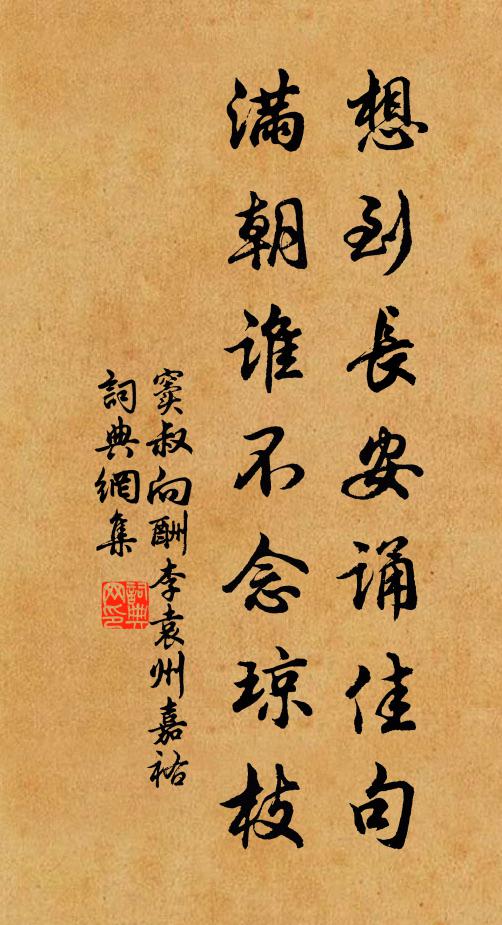 想到長安誦佳句
滿朝誰不念琼枝
窦叔向酬李袁州嘉祐
詞典網集
詞典网印